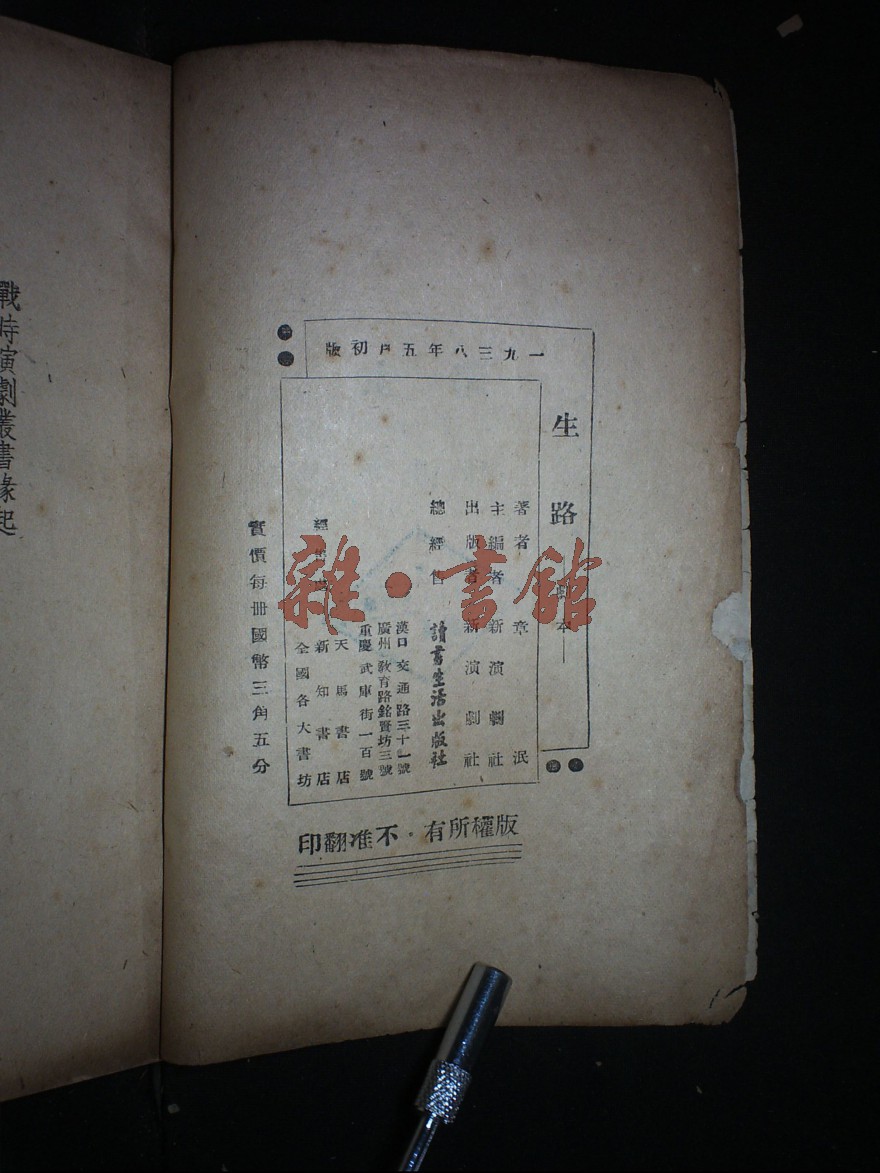 一九三八年五月初版
生路
本—
著者 章泯
主編者 新演劇社
出版者 新演劇社
總經售 讀書生活出版社
漢口交通路三十一號
廣州教育路銘賢坊三號
重慶武庫街一百號
天馬書店
經
新知書店
全國各大書坊
實價每冊國幣三角五分
版權所有·不准翻印
戰時演劇叢書緣起
雜·書館